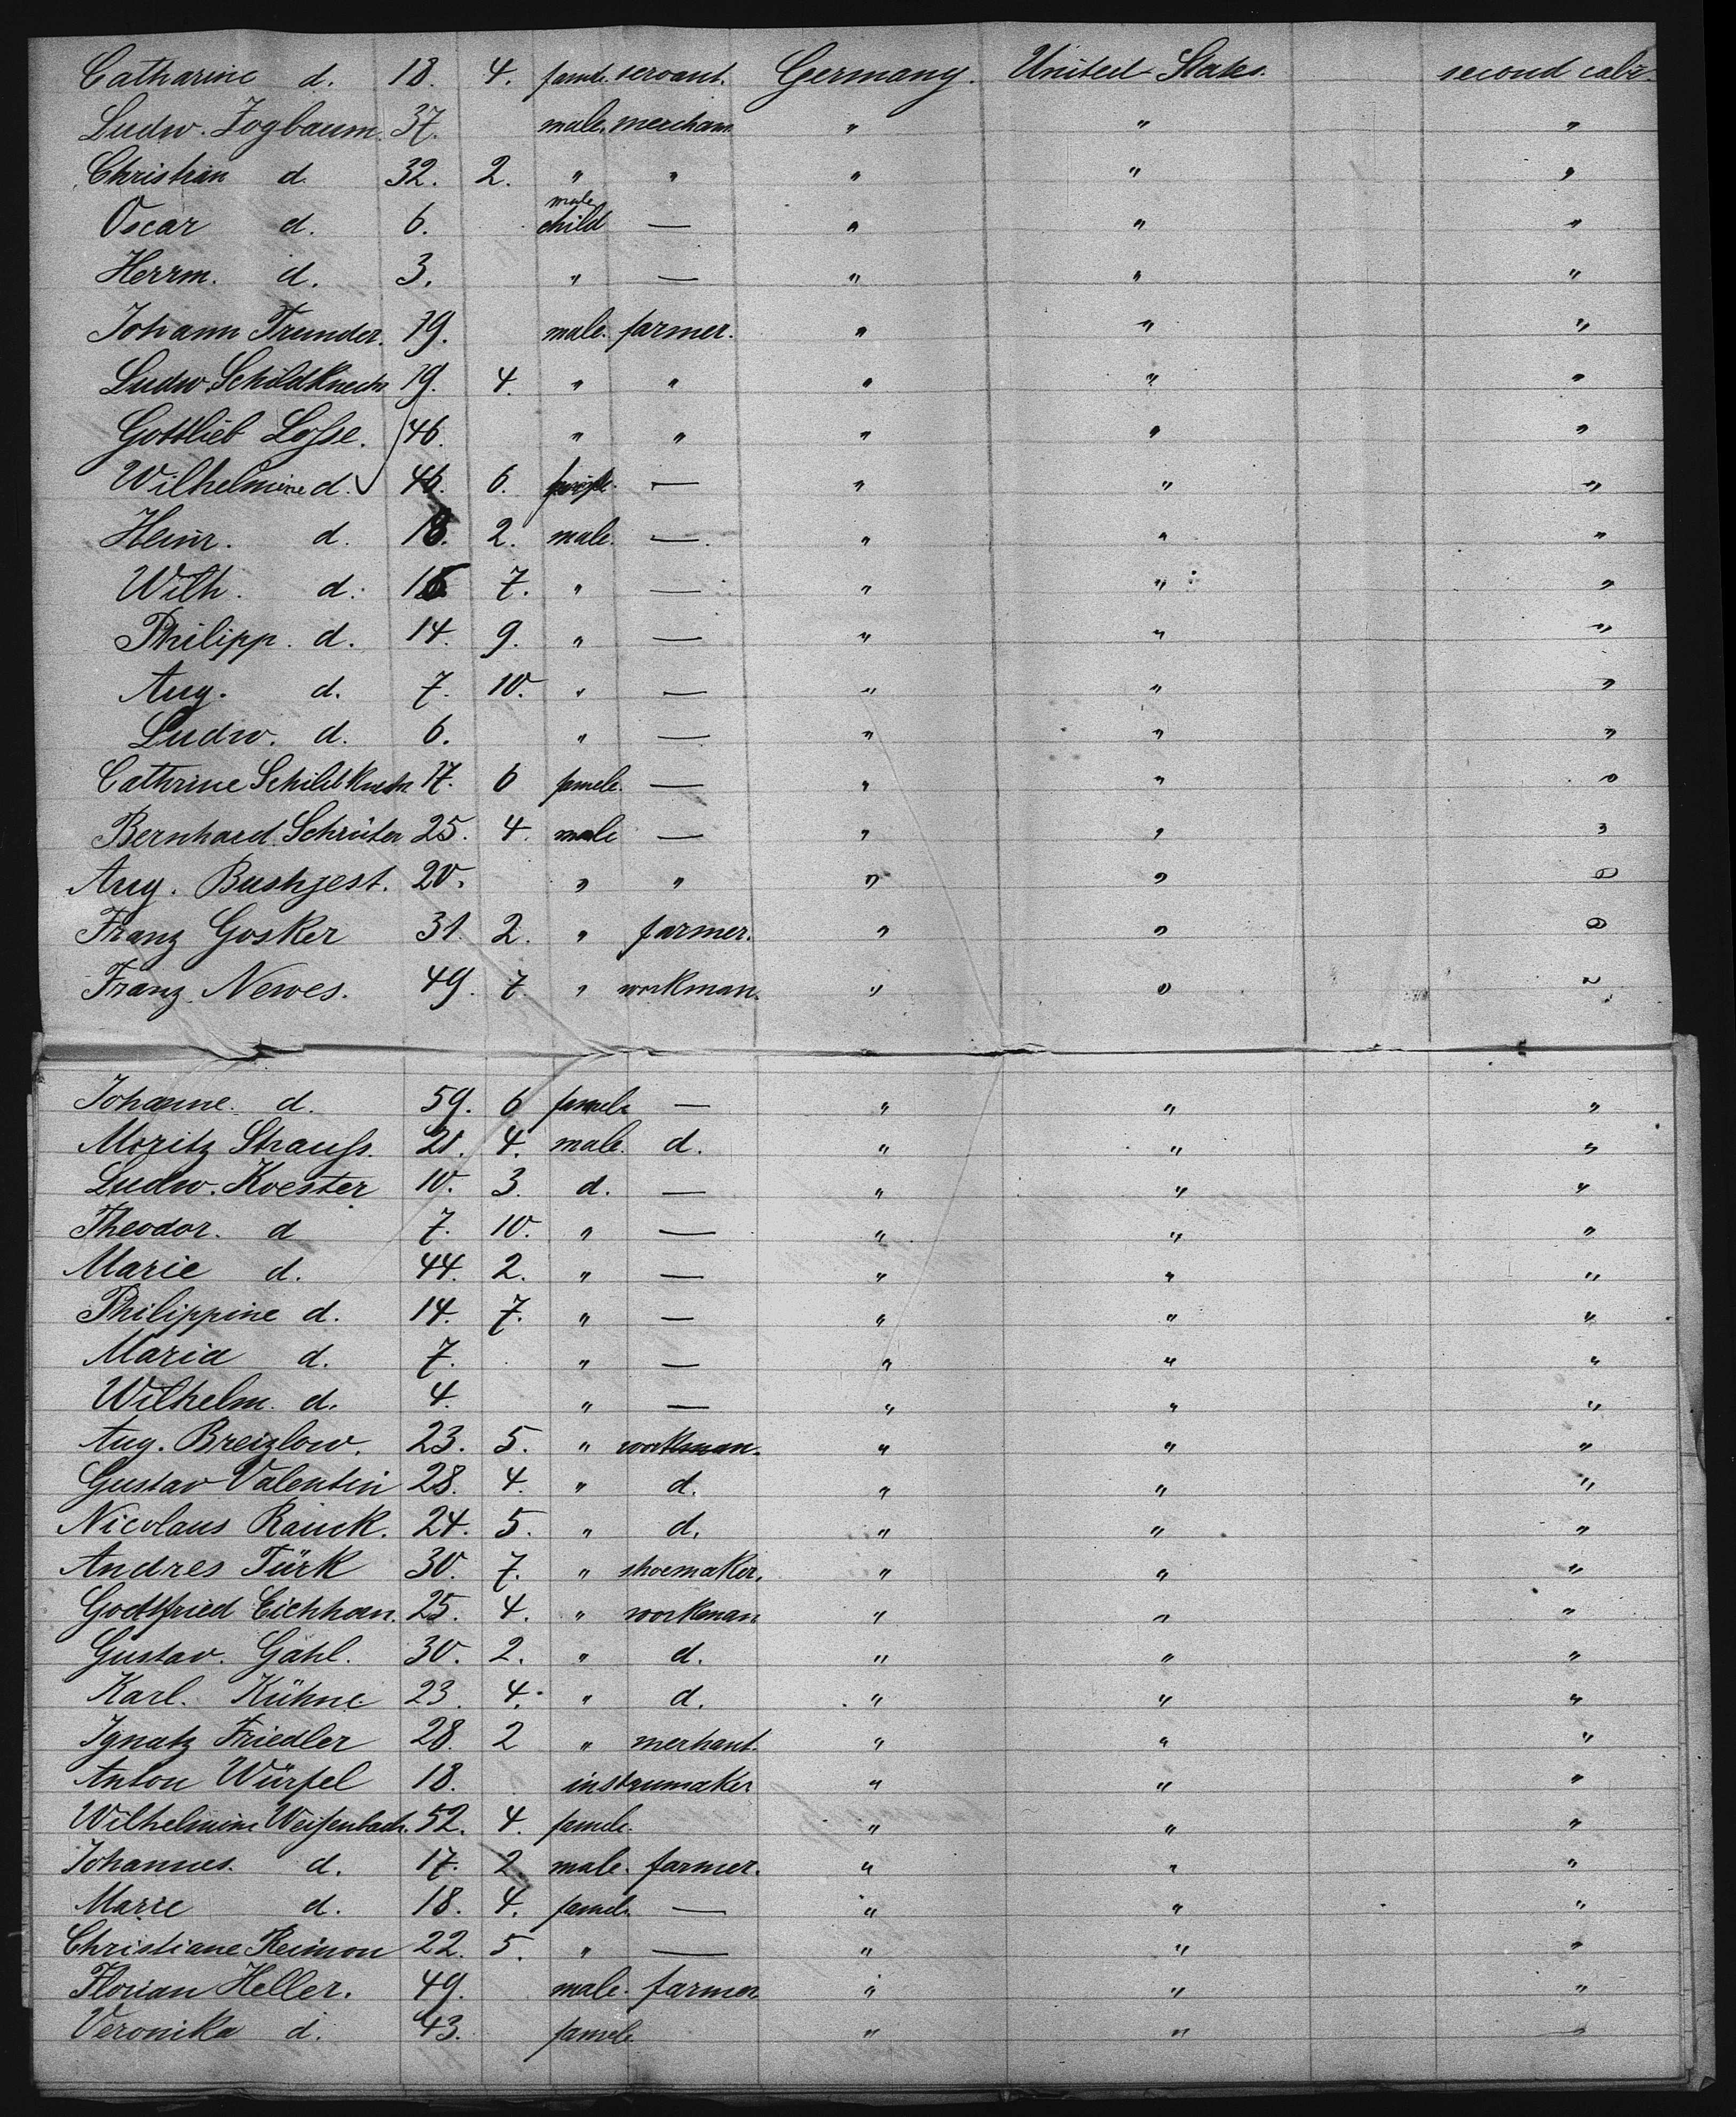 Catharine d. 18. 4. famele servant. Germany. United States. second cab
Ludw. Zogbaum. 37. male. merchant " " "
Christian d. 32. 2. " " " " "
Oscar d. 6. male child — " " "
Herrm. d. 3. " — " " "
Johann Trunder. 19. male. farmer. " " "
Ludw. Schildknecht 19. 4. " " " " "
Gottlieb Losse. 46. " " " " "
Wilhelmine d. 46. 6. — " " "
Heinr. d. 18. 2. male. — " " "
Wilh. d. 16 7. " — " " "
Philipp. d. 14. 9. " — " " "
Aug. d. 7. 10. " — " " "
Ludw. d. 6. " — " " "
Cathrine Schildknecht 17. 6 famele. — " " "
Bernhard Schrüter 25. 4. male — " " "
Aug. Bushjest. 20. " " " " "
Franz Gosker 31. 2. " farmer. " " "
Franz Newes. 49. 7. " workman. " " "
Johanne. d. 59. 6 famele — " " "
Moritz Strauss. 21. 4. male. d. " " "
Ludw. Koester 10. 3. d. — " " "
Theodor. d 7. 10. " — " " "
Marie d. 44. 2. " — " " "
Philippine d. 14. 7. " — " " "
Maria d. 7. " — " " "
Wilhelm. d. 4. " — " " "
Aug. Breizlow. 23. 5. " workman. " " "
Gustav Valentin 28. 4. " d. " " "
Nicolaus Rauck. 24. 5. " d. " " "
Andres Türk 30. 7. " shoemaker. " " "
Godtfried Eichhorn. 25. 4. " workman " " "
Gustav. Gahl. 30. 2. " d. " " "
Karl. Kühne 23. 4. " d. " " "
Ignatz Friedler 28. 2 " merhant. " " "
Anton Würfel 18. instrumaker " " "
Wilhelmine Weisenbach. 52. 4. famele. " " "
Johannes. d. 17. 2. male. farmer. " " "
Marie d. 18. 4. famele. — " " "
Christiane Reimon 22. 5. " — " " "
Florian Heller. 49. male. farmer " " "
Veronika d. 43. famele " " "